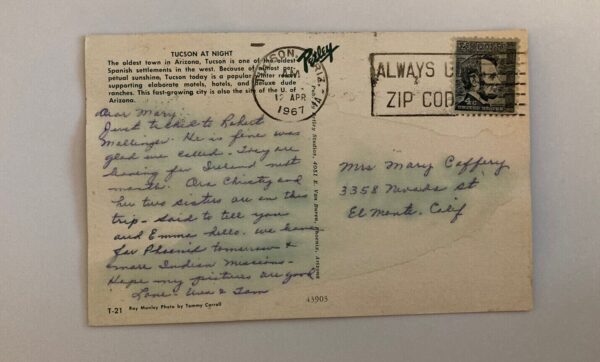 TUCSON AT NIGHT
The oldest town in Arizona, Tucson is one of the oldest
Spanish settlements in the west. Because of almost per-
petual sunshine, Tucson today is a popular winter resort
supporting elaborate motels, hotels, and deluxe dude
ranches. This fast-growing city is also the site of the U. of
Arizona.
Dear Mary.
Just talked to Robert
Mellinger. He is fine was
glad we called - They are
leaving for Ireland next
month. Ora Christy and
her two sisters are on this
trip - said to tell you
and Emma hello. We leave
for Phoenix tomorrow &
more Indian Missions -
Hope my pictures are good
Love - & Tom
T-21 Ray Manley Photo by Tommy Carroll
Petley
TUCSON, ARIZ.
PM
12 APR
1967
Petley Studios, 4051 E. Van Buren, Phoenix, Arizona
43903
ALWAYS
ZIP COD
4c
Mrs Mary Caffery
3358 Nevada St
El Monte. Calif